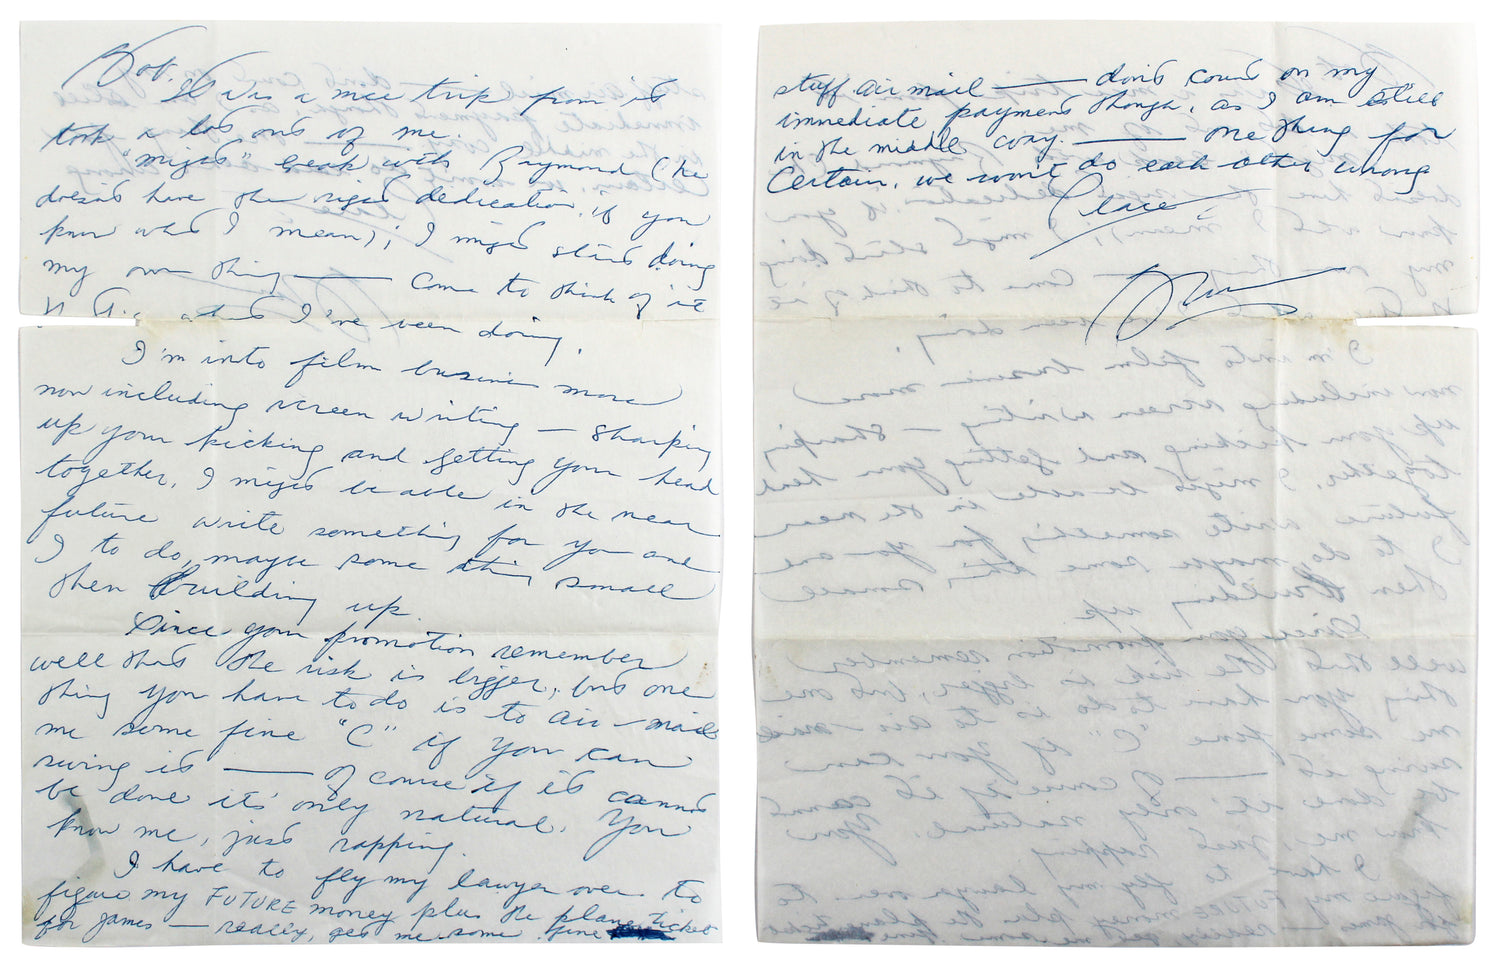 Bob.
It was a nice trip from it
took a lot out of me.
"might" break with Raymond (he
doesn't have the right dedication, if you
know what I mean); I might start doing
my own thing — come to think of it
what I've been doing.
I'm into film business more
now including screen writing — sharping
up your kicking and getting your head
together, I might be able in the near
future write something for you and
I to do, maybe some thing small
then building up.
Since your promotion remember
well that the risk is bigger, but one
thing you have to do is to air-mail
me some fine "C" if you can
swing it — of course if it cannot
be done it's only natural. You
know me, just rapping.
I have to fly my lawyer over to
figure my FUTURE money plus the plane ticket
for James — really, get me some fine
stuff air mail — don't count on my
immediate payment though, as I am still
in the middle way. — one thing for
certain, we won't do each other wrong
Peace